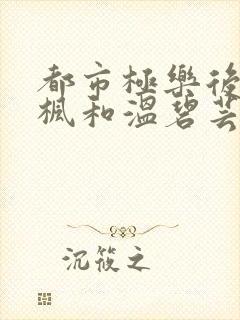 都市極樂後
楓和溫碧芸
沉筱之